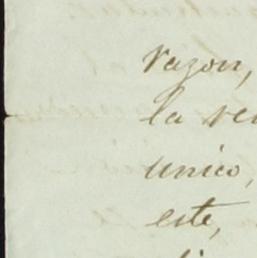 razon,
la
unico,
este,